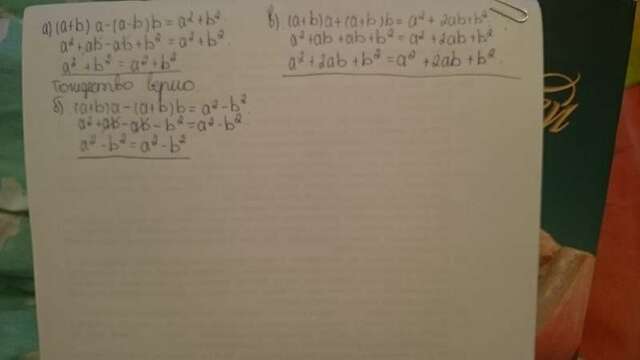 а) (a+b) a-(a-b)b = a²+b²
a²+ab-ab+b² = a²+b².
a²+b² = a²+b²
Тождество верно
б) (a+b)a-(a+b)b = a²-b²
a²+ab-ab-b² = a²-b².
a²-b² = a²-b²
в) (a+b)a+(a+b)b = a²+2ab+b².
a²+ab+ab+b² = a²+2ab+b²
a²+2ab+b² = a²+2ab+b².